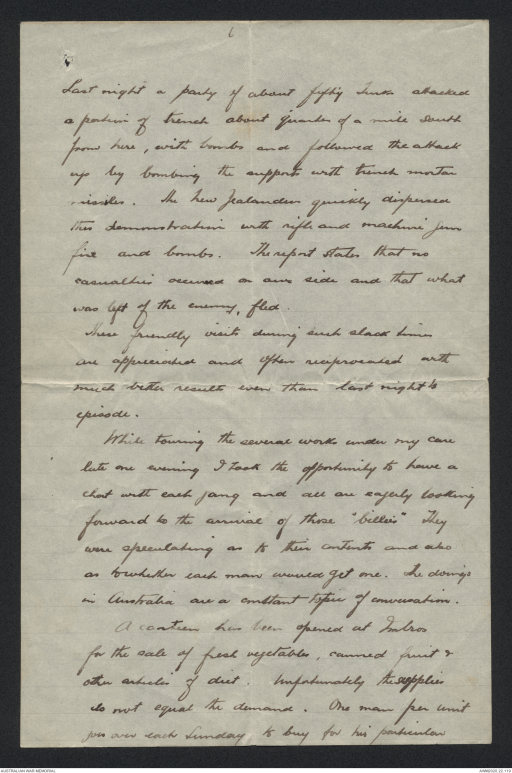 6
Last night a party of about fifty Turks attacked
a portion of trench about quarter of a mile South
from here, with bombs and followed the attack
up by bombing the supports with trench mortar
missiles. The New Zealanders quickly dispersed
this demonstration with rifle and machine gun
fire and bombs. The report states that no
casualties occurred on our side and that what
was left of the enemy, fled.
These friendly visits during such slack times
are appreciated and often reciprocated with
much better results even than last night's
episode.
While touring the several works under my care
late one evening I took the opportunity to have a
chat with each gang and all are eagerly looking
forward to the arrival of those "billies" They
were speculating as to their contents and also
as to whether each man would get one. The doings
in Australia are a constant topic of conversation.
A canteen has been opened at Imbros
for the sale of fresh vegetables, canned fruit &
other articles of diet. Unfortunately the supplies
do not equal the demand. One man per unit
goes over each Sunday to buy for his particular
AUSTRALIAN WAR MEMORIAL